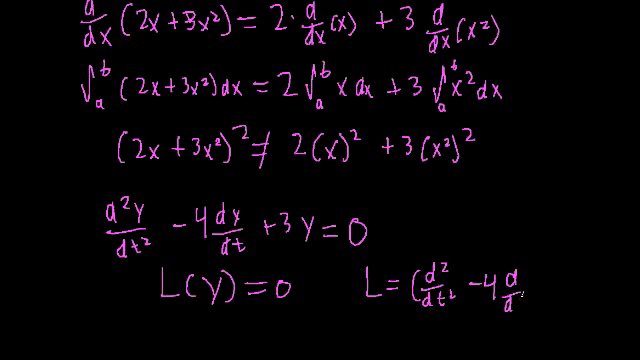 d/dx (2x + 3x²) = 2 · d/dx (x) + 3 d/dx (x²)
∫ₐᵇ (2x + 3x²) dx = 2 ∫ₐᵇ x dx + 3 ∫ₐᵇ x² dx
(2x + 3x²)² ≠ 2(x)² + 3(x²)²
d²y/dt² - 4 dy/dt + 3y = 0
L(y) = 0 L = (d²/dt² - 4 d/d